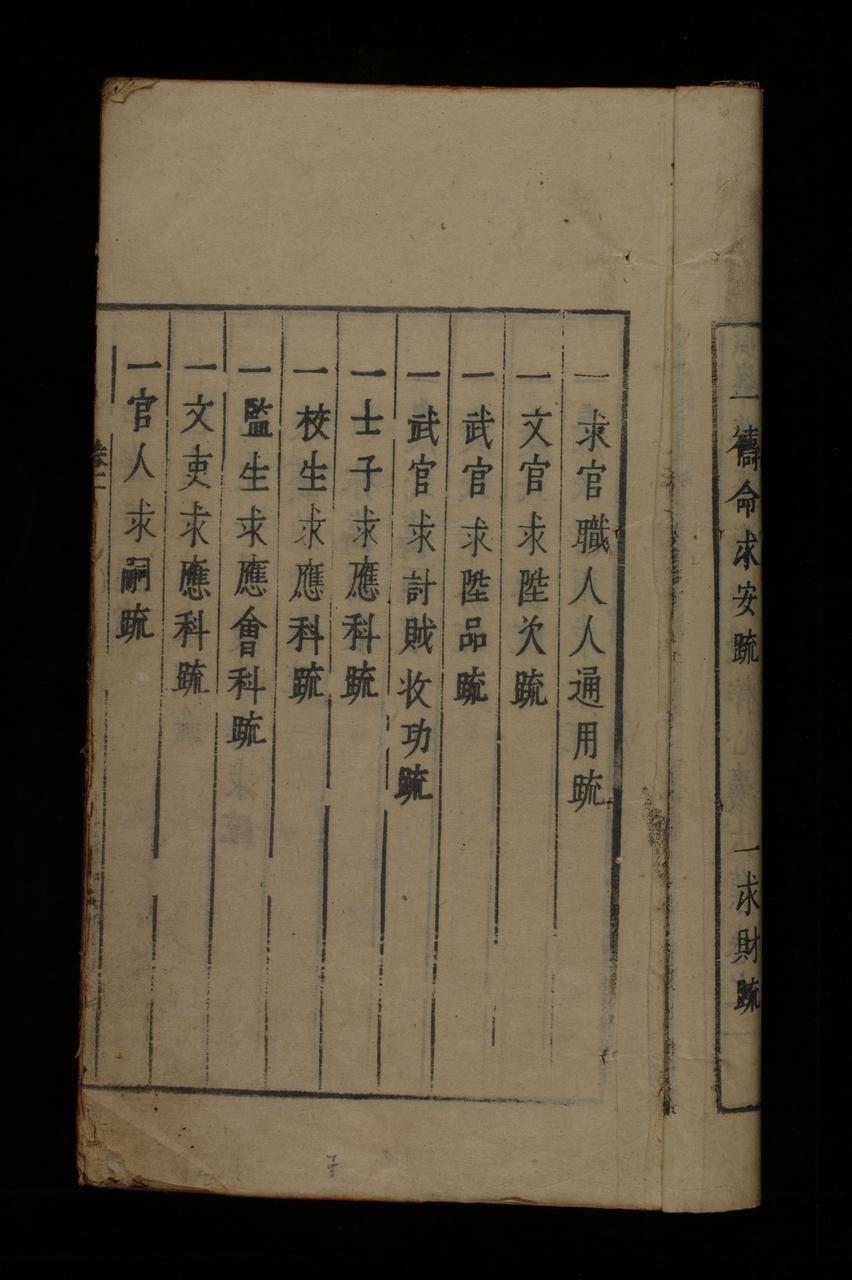 一禱命求安䟽 一求財䟽
一求官職人人通用䟽
一文官求陞次䟽
一武官求陞品䟽
一武官求討賊收功䟽
一士子求應科䟽
一校生求應科䟽
一監生求應會科䟽
一文吏求應科䟽
一官人求嗣䟽
卷二